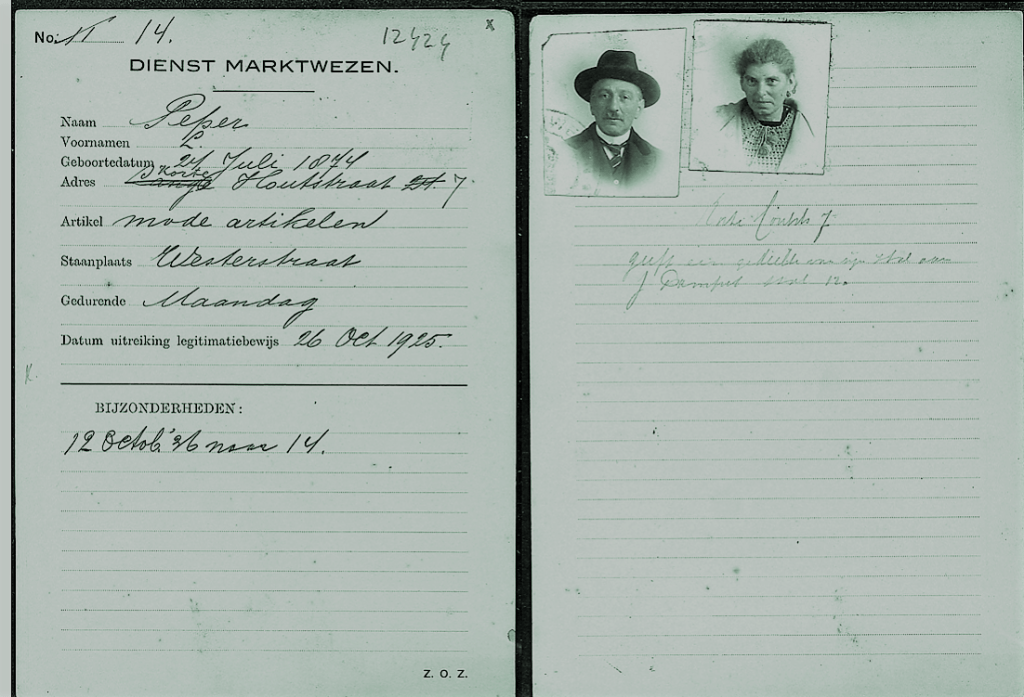 No. 14. 12424 X
DIENST MARKTWEZEN.
Naam Peper
Voornamen L.
Geboortedatum 24 Juli 1874
Adres Korte Houtstraat 7
Artikel mode artikelen
Staanplaats Westerstraat
Gedurende Maandag
Datum uitreiking legitimatiebewijs 26 Oct 1925.
BIJZONDERHEDEN:
12 Octob. '36 naar 14.
Z. O. Z.
Korte Houtstr 7
geeft een gedeelte van zijn stal aan
J